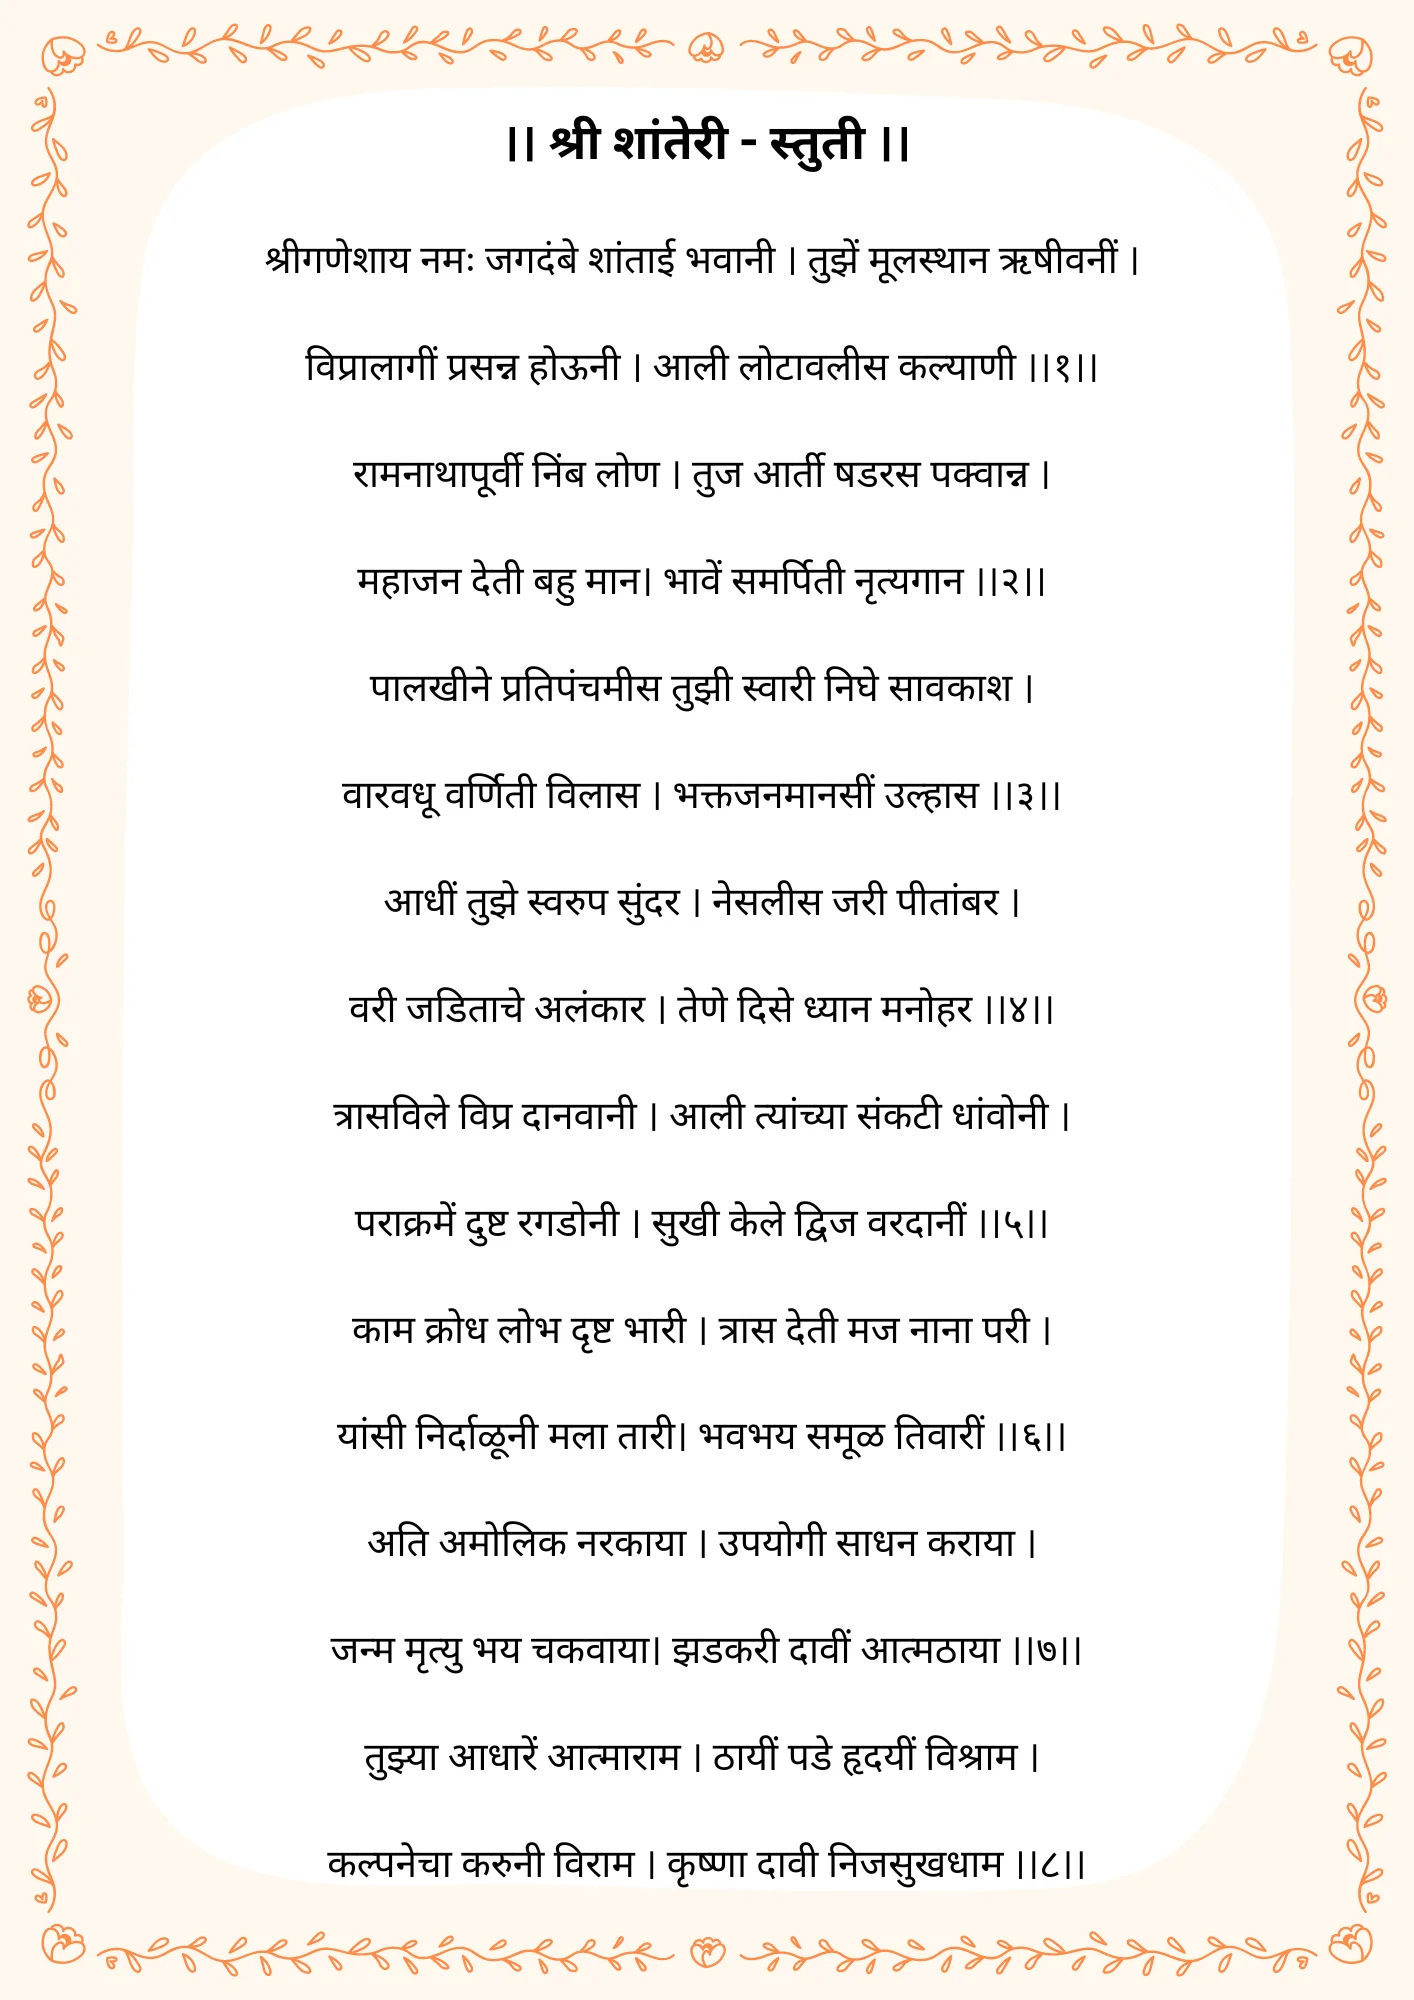 ।। श्री शांतेरी - स्तुती ।।
श्रीगणेशाय नमः जगदंबे शांताई भवानी । तुझें मूलस्थान ऋषीवनीं ।
विप्रालागीं प्रसन्न होऊनी । आली लोटावलीस कल्याणी ।।१।।
रामनाथापूर्वी निंब लोण । तुज आर्ती षडरस पक्वान्न ।
महाजन देती बहु मान। भावें समर्पिती नृत्यगान ।।२।।
पालखीने प्रतिपंचमीस तुझी स्वारी निघे सावकाश ।
वारवधू वर्णिती विलास । भक्तजनमानसीं उल्हास ।।३।।
आधीं तुझे स्वरुप सुंदर । नेसलीस जरी पीतांबर ।
वरी जडिताचे अलंकार । तेणे दिसे ध्यान मनोहर ।।४।।
त्रासविले विप्र दानवानी । आली त्यांच्या संकटी धांवोनी ।
पराक्रमें दुष्ट रगडोनी । सुखी केले द्विज वरदानीं ।।५।।
काम क्रोध लोभ दृष्ट भारी । त्रास देती मज नाना परी ।
यांसी निर्दाळूनी मला तारी। भवभय समूळ तिवारीं ।।६।।
अति अमोलिक नरकाया । उपयोगी साधन कराया ।
जन्म मृत्यु भय चकवाया। झडकरी दावीं आत्मठाया ।।७।।
तुझ्या आधारें आत्माराम । ठायीं पडे हृदयीं विश्राम ।
कल्पनेचा करुनी विराम । कृष्णा दावी निजसुखधाम ।।८।।